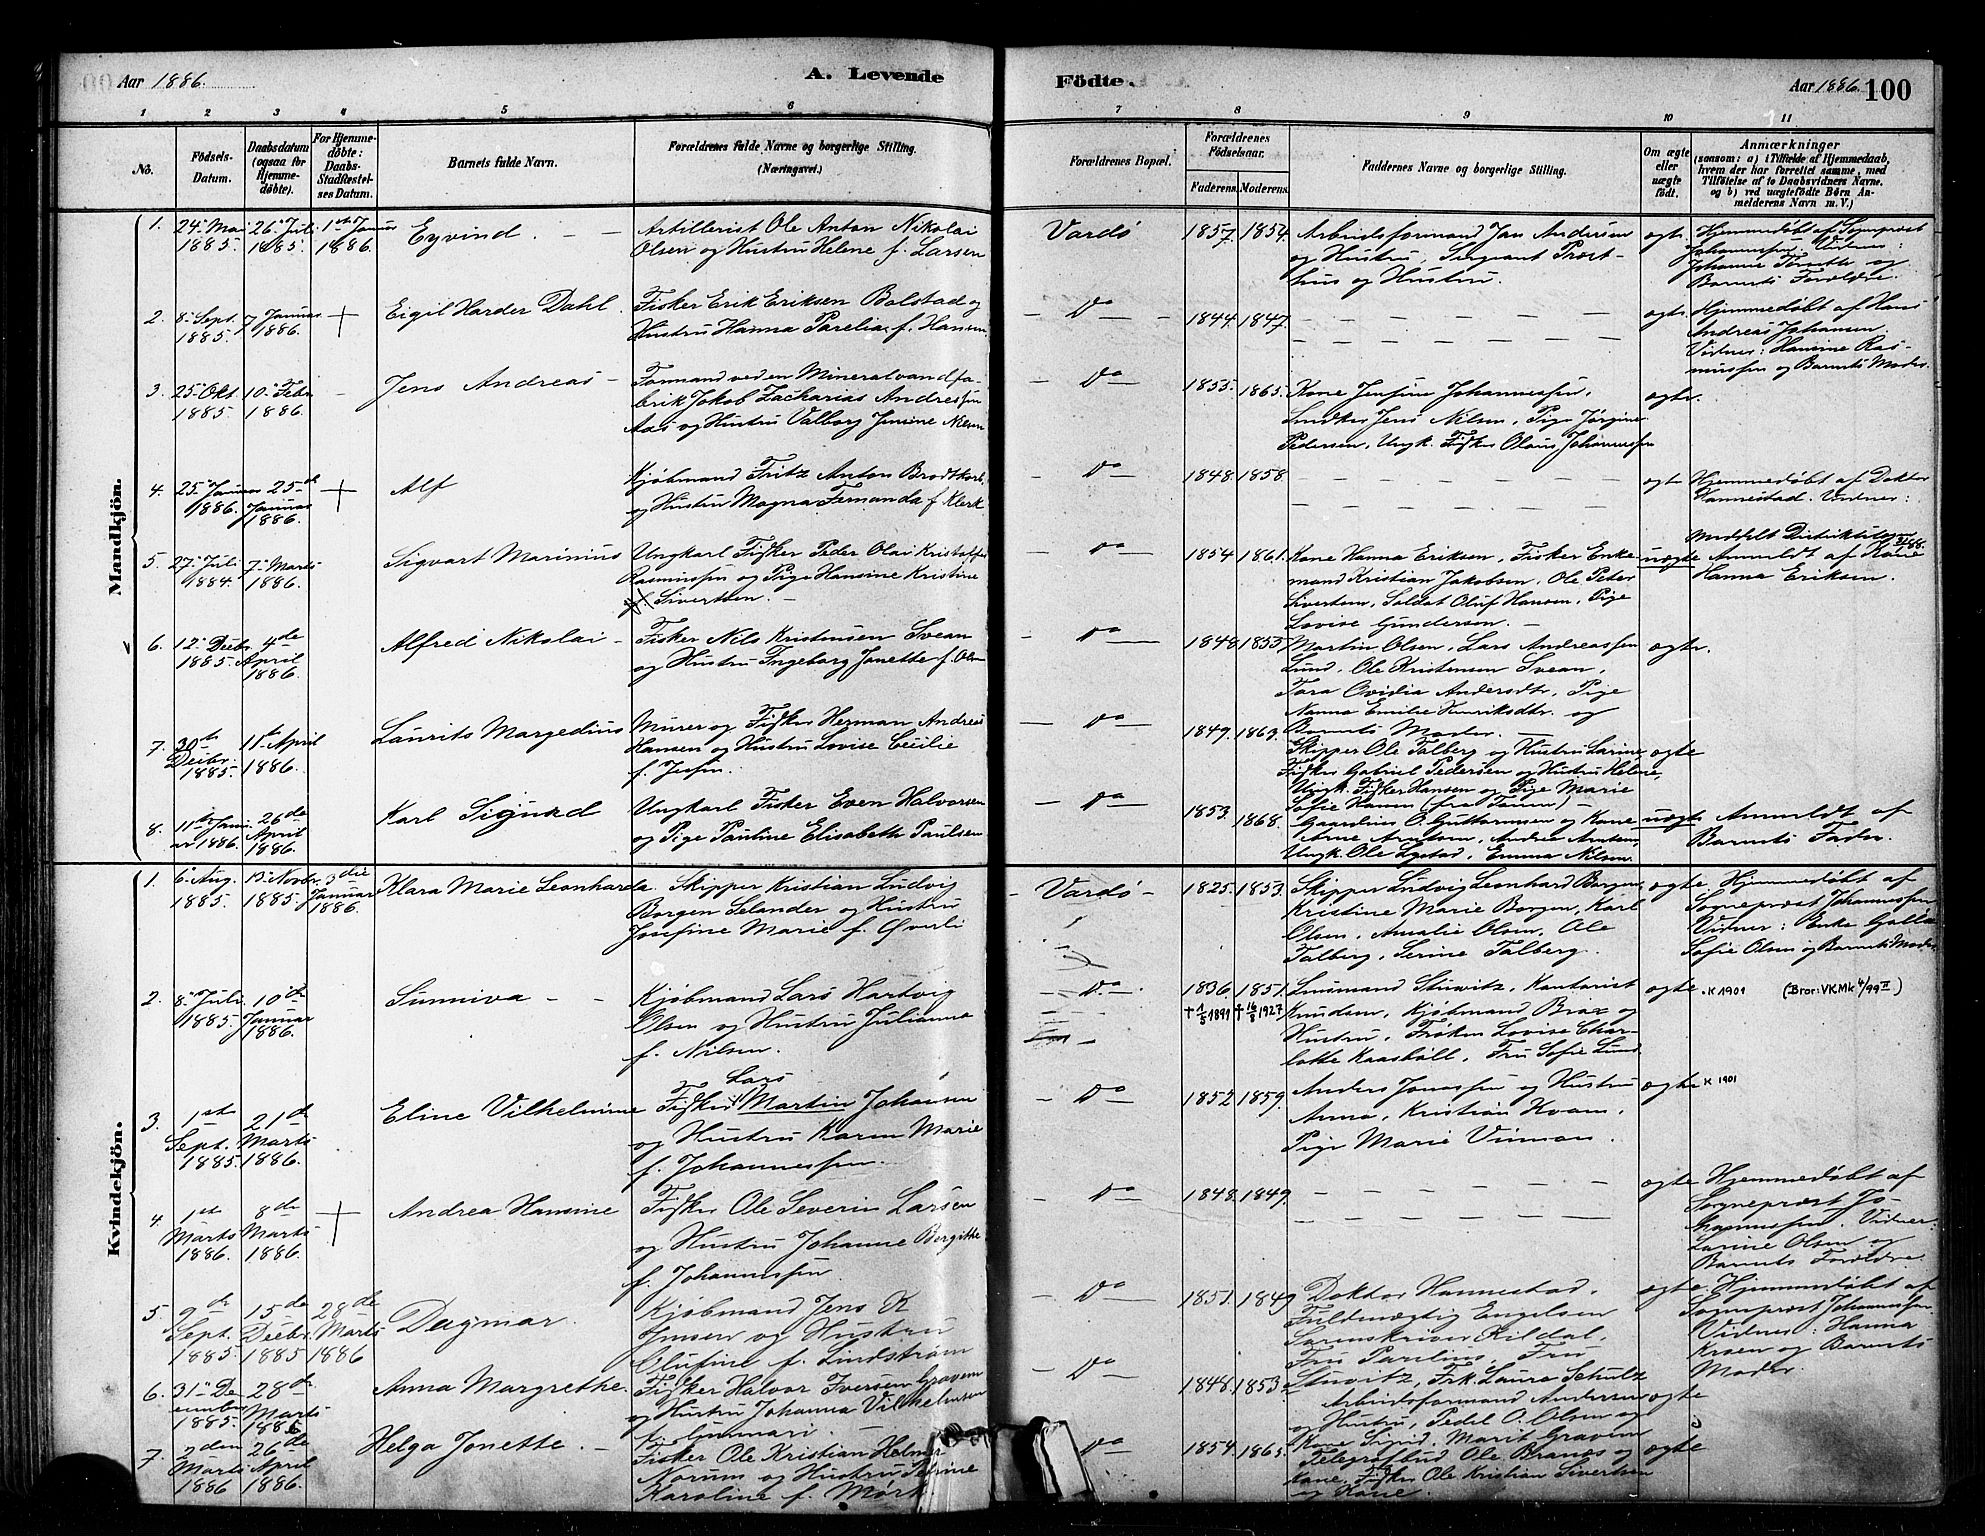 Aar 1886.
A. Levende
Födte.
Aar 1886. 100
1 2 3 4 5 6 7 8 9 10 11
No.
Födsels-Datum.
Daabsdatum (ogsaa for Hjemmedöbte).
For Hjemmedöbte: Daabs-Stadfæstelses Datum.
Barnets fulde Navn.
Forældrenes fulde Navne og borgerlige Stilling.
(Næringsvei.)
Forældrenes Bopæl.
Forældrenes Födselsaar.
Faderens. Moderens.
Faddernes Navne og borgerlige Stilling.
Om ægte eller uægte födt.
Anmærkninger
(saasom: a) i Tilfælde af Hjemmedaab, hvem der har forrettet samme, med Tilföielse af to Daabsvidners Navne, og b) ved uægtefödte Börn Anmelderens Navn m. V.)
Mandkjön.
1. 24. Mai 1885. 26. Juli 1885. 1ste Januar 1886.
Eyvind. — —
Artillerist Ole Anton Nikolai
Olsen og Hustru Helene f. Larsen
Vardö
1857. 1854.
Arbeidsformand Jan Andersen
og Hustru, Sergeant Præst-
hus og Hustru.
ægte
Hjemmedøbt af Sogneprest
Johannessen. Vidner:
Barnets Forældre
2. 8. Sept. 1885. 7. Januar 1886. +
Eigil Harder Dahl.
Fisker Erik Eriksen Bolstad og
Hustru Hanna Parelia f. Hansen
— Do —
1844. 1847.
ægte
Hjemmedøbt af Hans
Andreas Johansen.
Vidner: Hansine Ras-
mussen og Barnets Moder.
3. 25. Okt. 1885. 10. Febr. 1886.
Jens Andreas —
Formand ved en Mineralvandfa-
brik Jakob Zacharias Andressen
Aas og Hustru Valborg Jensine Nilsen
— Do
1855. 1865.
Kone Jensine Johannessen,
Snedker Jens Nilsen, Pige Jørgine
Pedersen, Ungk. Fisker Olaus Johannessen
ægte.
4. 25. Januar 1886. 25de Januar 1886. +
Alf
Kjøbmand Fritz Anton Brodtkorb
og Hustru Magna Fernanda f. Klerk
Do
1848. 1858.
ægte
Hjemmedøbt af Doktor
Hannestad. Vidner:
5. 27. Juli 1884. 7. Marts 1886.
Sigvart Marinius
Ungkarl Fisker Peder Olai Kristoffer
Rasmussen og Pige Hansine Kristine
f. Sivertsen. —
— Do —
1854. 1861.
Kone Hanna Eriksen, Fisker Enke-
mand Kristian Jakobsen, Ole Peter
Sivertsen, Soldat Oluf Hansen, Pige
Lovise Gundersen. —
uægte
Anmeldt af Kone
Hanna Eriksen.
6. 12. Decbr. 1885. 4de April 1886.
Alfred Nikolai —
Fisker Nils Kristensen Svean
og Hustru Ingeborg Jonette f. Olsen
— Do —
1848. 1853.
Martin Olsen, Lars Andreassen
Lund, Ole Kristensen Svean,
Tora Ovidia Andersdtr., Pige
Nanna Emilie Henriksdtr. og
Barnets Moder. —
ægte.
7. 30te Decbr. 1885. 11te April 1886.
Laurits Margedius
Murer og Fisker Herman Andreas
Hansen og Hustru Lovise Cecilie
f. Jessen.
— Do —
1849. 1863.
Skipper Ole Talberg og Hustru Larine,
Fisker Gabriel Pedersen og Hustru Helene,
Ungk. Fisker Hansen og Pige Marie
Sofie Hansen
ægte
8. 11te Januar 1886. 26de April 1886.
Karl Sigurd
Ungkarl Fisker Even Halvorsen
og Pige Pauline Elisabeth Paulsen
— Do —
1853. 1868.
Gaardbrus O. Guttormsen og Kone
Arne Arntsen, Andrea Arntsen,
Ungk. Ole Lystad, Emma Nilsen
uægte
Anmeldt af
Barnets Fader.
Kvindekjön.
1. 6. Aug. 1885. 15. Novbr. 1885. 3die Januar 1886.
Klara Marie Leonharda.
Skipper Kristian Ludvig
Borgen Selander og Hustru
Josefine Marie f. Øverli
— Vardö —
1825. 1853.
Skipper Ludvig Leonhard Borgen,
Kristine Marie Borgen, Karl
Olsen, Amalie Olsen, Ole
Talberg, Serine Talberg.
ægte.
Hjemmedøbt af
Sogneprest Johannessen
Vidner: Enke
Sofie Olsen og Barnets Moder.
2. 8. Juli 1885. 10de Januar 1886.
Sunniva — —
Kjøbmand Lars Hartvig
Olsen og Hustru Julianna
f. Nilsen.
— Do —
1836. 1851.
† 1/5 1891 † 16/8 1927
Lensmand Stuwitz, Kontorist
Knudsen, Kjøbmand Brox og
Hustru, Frøken Lovise Char-
lotte Kaasbøll, Fru Sofie Lund
ægte
. K 1901 (Bror: VKMk 4/99 II)
3. 1ste Sept. 1885. 21de Marts 1886.
Eline Vilhelmine
Lars
Fisker Martin Johansen
og Hustru Karen Marie
f. Johannessen.
— Do —
1852. 1859.
Anders Jonassen og Hustru
Anna, Kristian Kvam,
Pige Marie Vinman.
ægte
K 1901
4. 1ste Marts 1886. 8de Marts 1886. +
Andrea Hansine
Fisker Ole Severin Larsen
og Hustru Johanne Bergitte
f. Johannessen
— Do
1848. 1849.
ægte
Hjemmedøbt af
Sogneprest Jo-
hannessen. Vidner:
Larine Olsen og
Barnets Forældre.
5. 9de Sept. 1885. 15de Decbr. 1885 28de Marts 1886
Dagmar.
Kjøbmand Jens K.
Jensen og Hustru
Olufine f. Lindstrøm
— Do
1851. 1849
Doktor Hannestad,
Fuldmægtig Engelsen
Sorenskriver Kildal,
Fru Parelius, Fru
Stuwitz, Frk. Laura Schulz
ægte
Hjemmedøbt af
Sogneprest Johannessen.
Vidner: Hanna
og Barnets
Moder.
6. 31. Decem.ber 1885. 28de Marts 1886
Anna Margrethe.
Fisker Halvor Iversen Gravem
og Hustru Johanna Vilhelmsen
— Do —
1848. 1853.
Arbeidsformand Andersen
og Hustru, Pedel O. Olsen og
Kone Sigrid, Marit Gravem
ægte
7. 2den Marts 1886 26de April 1886.
Helga Jonette. —
Fisker Ole Kristian Helmer
Norum og Hustru Petrine
Karoline f. Mørk
— Do —
1854. 1865.
Telegrafbud Ole Branæs og
Kone, Fisker Ole Kristian Sivertsen
og Kone.
ægte